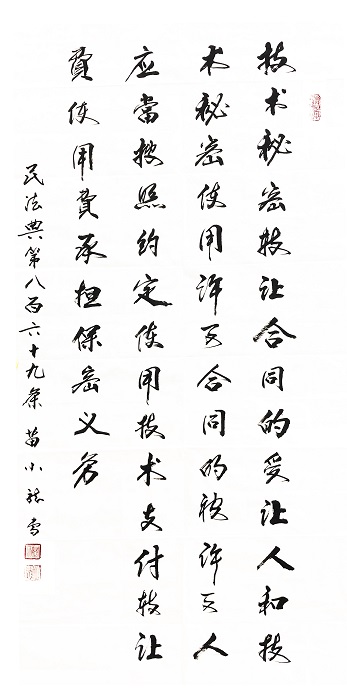 技术秘密转让合同的受让人和技
术秘密使用许可合同的被许可人
应當按照约定使用技术支付转让
費使用費承担保密义务
民法典第八百六十九条 苗小